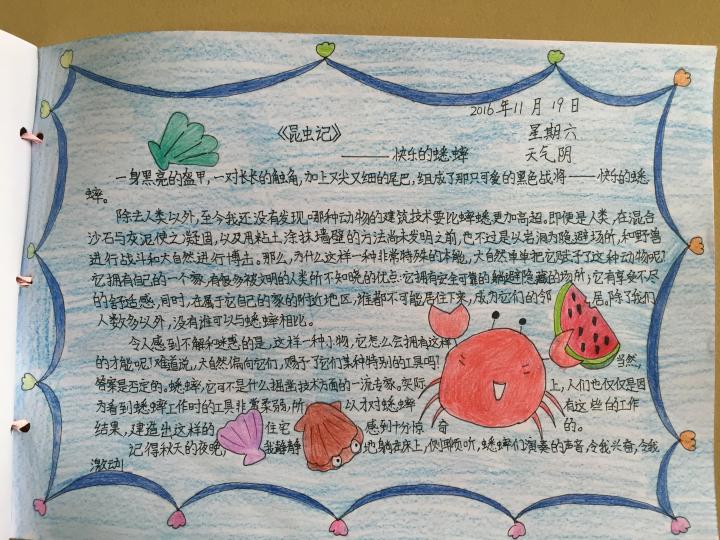 2016年11月19日
《昆虫记》 星期六
——快乐的蟋蟀 天气阴
一身黑亮的盔甲,一对长长的触角,加上又尖又细的尾巴,组成了那只可爱的黑色战将——快乐的蟋
蟀。
除去人类以外,至今我还没有发现哪种动物的建筑技术要比蟋蟀更加高超。即便是人类,在混合
沙石与灰泥使之凝固,以及用粘土涂抹墙壁的方法尚未发明之前,也不过是以岩洞为隐避场所,和野兽
进行战斗和大自然进行搏击。那么,为什么这样一种非常特殊的本能,大自然单单把它赋予了这种动物呢?
它拥有自己的一个家,有很多被文明的人类所不知晓的优点:它拥有安全可靠的躺避隐藏的场所;它有享受不尽
的舒适感,同时,在属于它自己的家的附近地区,谁都不可能居住下来,成为它们的邻居,除了我们
人类多以外,没有谁可以与蟋蟀相比。
令人感到不解和迷惑的是,这样一种小物,它怎么会拥有这样
的才能呢!难道说,大自然偏向它们,赐予了它们某种特别的工具吗? 当然,
答案是否定的。蟋蟀,它可不是什么掘凿技术方面的一流专家。实际上,人们也仅仅是因
为看到蟋蟀工作时的工具非常柔弱,所以才对蟋蟀有这些的工作
结果,建造出这样的住宅感到十分惊奇的。
记得秋天的夜晚,我静静地躺在床上,侧耳倾听,蟋蟀们演奏的声音,令我兴奋,令我
激动!